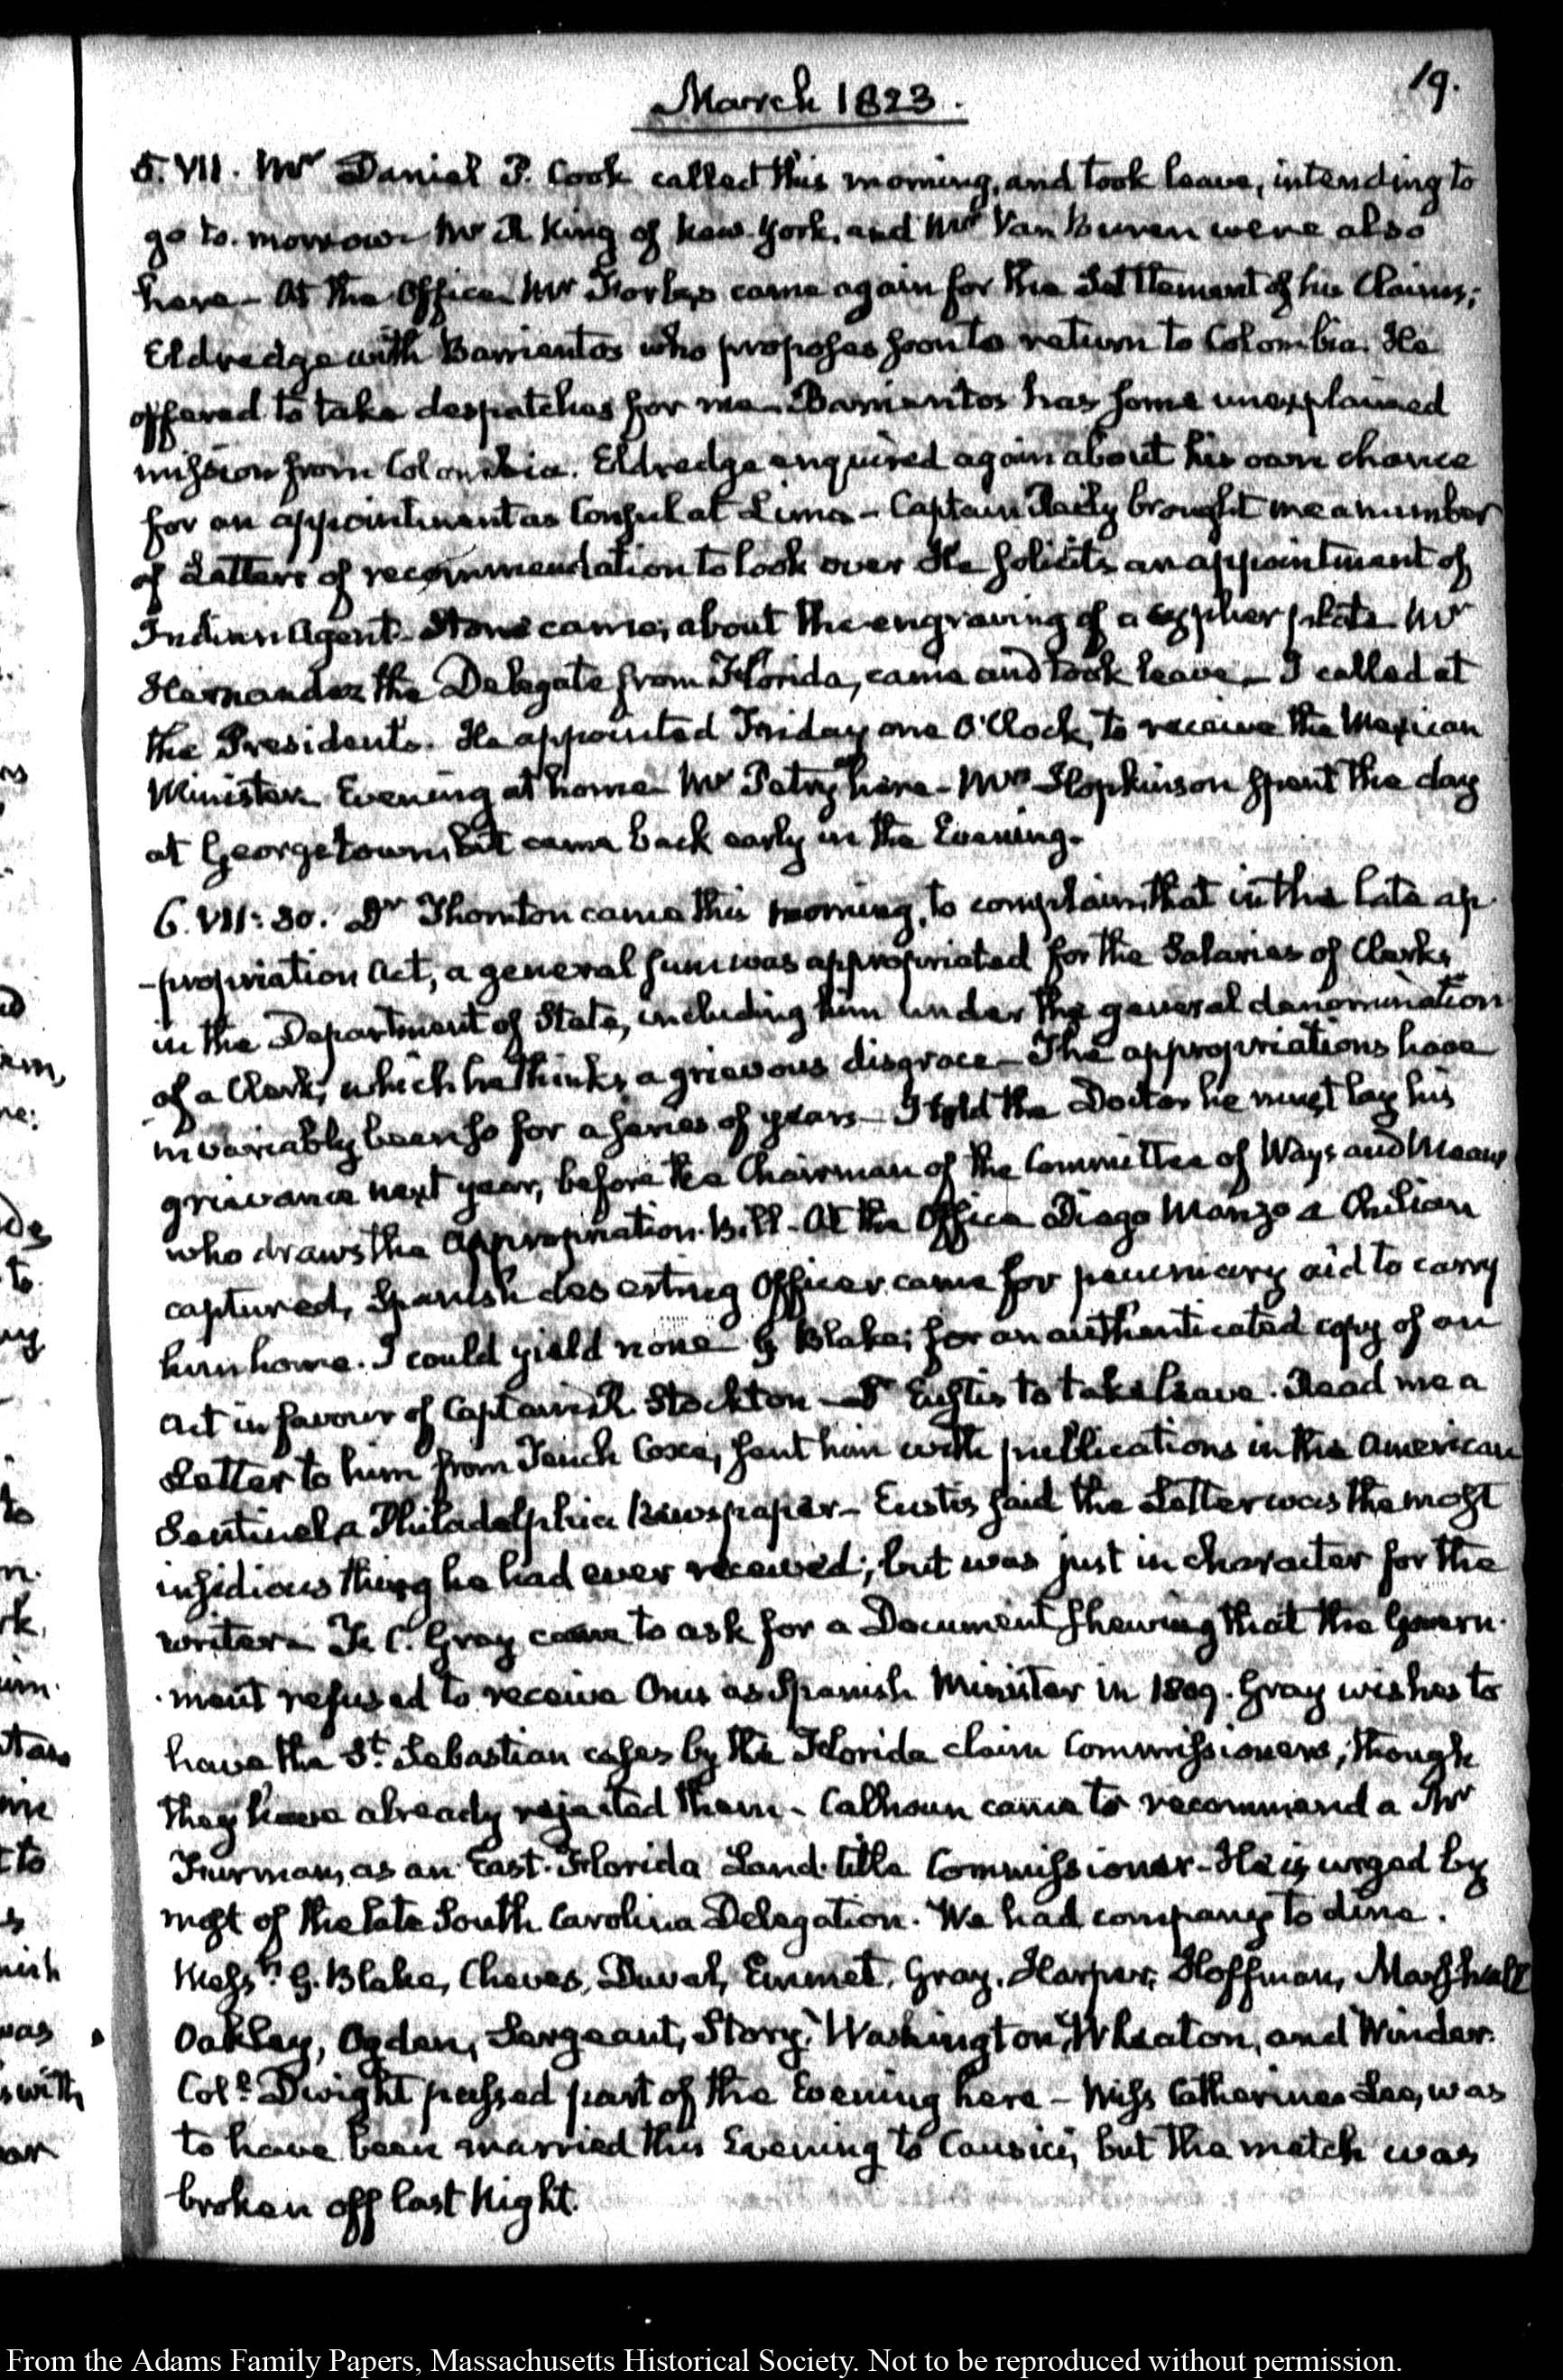 19.
March 1823.
5. VII. Mr Daniel P. Cook called this morning, and took leave, intending to
go to-morrow. Mr R King of New-York, and Mr Van Buren were also
here— At the Office Mr Forbes came again for the Settlement of his Claims;
Eldredge with Barrientos who proposes soon to return to Colombia. He
offered to take despatches for me— Barrientos has some unexplained
mission from Colombia. Eldredge enquired again about his own chance
for an appointment as Consul at Lima— Captain brought me a number
of Letters of recommendation to look over He solicits an appointment of
Indian Agent— Stone came, about the engraving of a cypher plate Mr
Hernandez the Delegate from Florida, came and took leave— I called at
the Presidents. He appointed Friday one O'Clock, to receive the Mexican
Minister. Evening at home— Mr Petry here— Mrs Hopkinson spent the day
at Georgetown, but came back early in the Evening.
6. VII: 30. Dr Thornton came this morning, to complain that in the late ap-
-propriation Act, a general sum was appropriated for the Salaries of Clerks
in the Department of State, including him under the general denomination
of a Clerk; which he thinks a grievous disgrace— The appropriations have
invariably been so for a series of years— I told the Doctor he must lay his
grievance next year, before the Chairman of the Committee of Ways and Means
who draws the Appropriation Bill— At the Office Diego Manzo a Chilian
captured, Spanish deserting Officer came for pecuniary aid to carry
him home. I could yield none G Blake; for an authenticated copy of an
Act in favour of Captain R. Stockton— Dr Eustis to take leave. Read me a
Letter to him from Tench Coxe, sent him with publications in the American
Sentinel a Philadelphia Newspaper— Eustis said the Letter was the most
insidious thing he had ever received; but was just in character for the
writer— F. C. Gray came to ask for a Document shewing that the Govern-
-ment refused to receive Onis as Spanish Minister in 1809. Gray wishes to
have the St. Sebastian cases by the Florida claim Commissioners, though
they have already rejected them— Calhoun came to recommend a Mr
Furman, as an East-Florida Land-title Commissioner— He is urged by
most of the late South Carolina Delegation. We had company to dine.
Messrs. G. Blake, Cheves, Duval, Emmet, Gray, Harper, Hoffman, Marshall
Oakley, Ogden, Sergeant, Story, Washington, Wheaton, and Winder.
Coll. Dwight passed part of the Evening here— Miss Catherine Lee, was
to have been married this Evening to Causici, but the match was
broken off last Night.
From the Adams Family Papers, Massachusetts Historical Society. Not to be reproduced without permission.